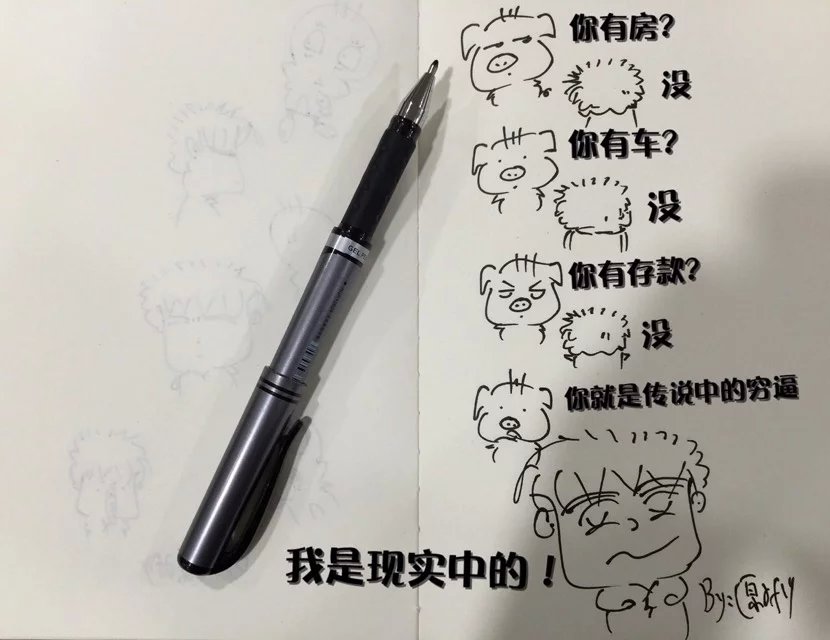 你有房？
没
你有车？
没
你有存款？
没
你就是传说中的穷逼
我是现实中的！
By: